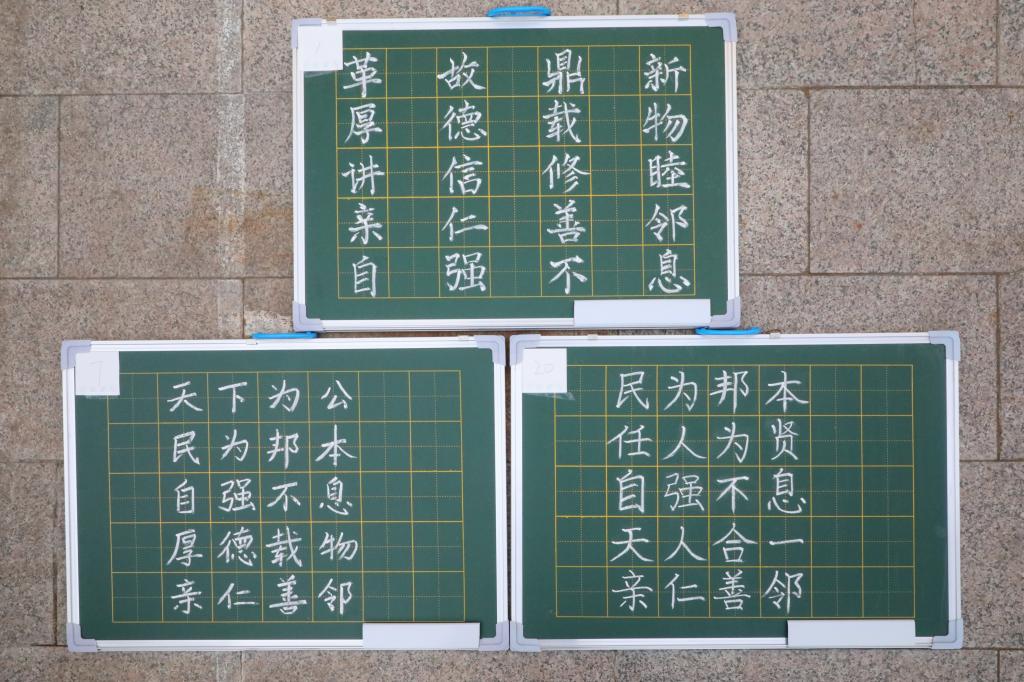 1
革故鼎新
厚德载物
讲信修睦
亲仁善邻
自强不息
7
天下为公
民为邦本
自强不息
厚德载物
亲仁善邻
20
民为邦本
任人为贤
自强不息
天人合一
亲仁善邻